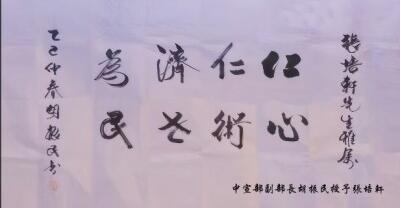 張培軒先生雅屬
仁心
仁術
濟世
為民
乙巳仲春胡振民书
中宣部副部長胡振民授予張培軒